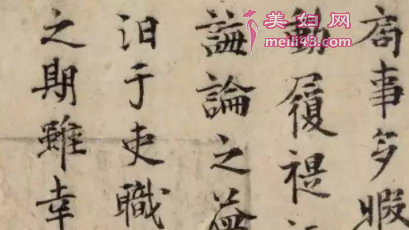 局事多暇
動履禔
誨論之益
汩于吏職
之期雖幸
美妇网
meili43.com